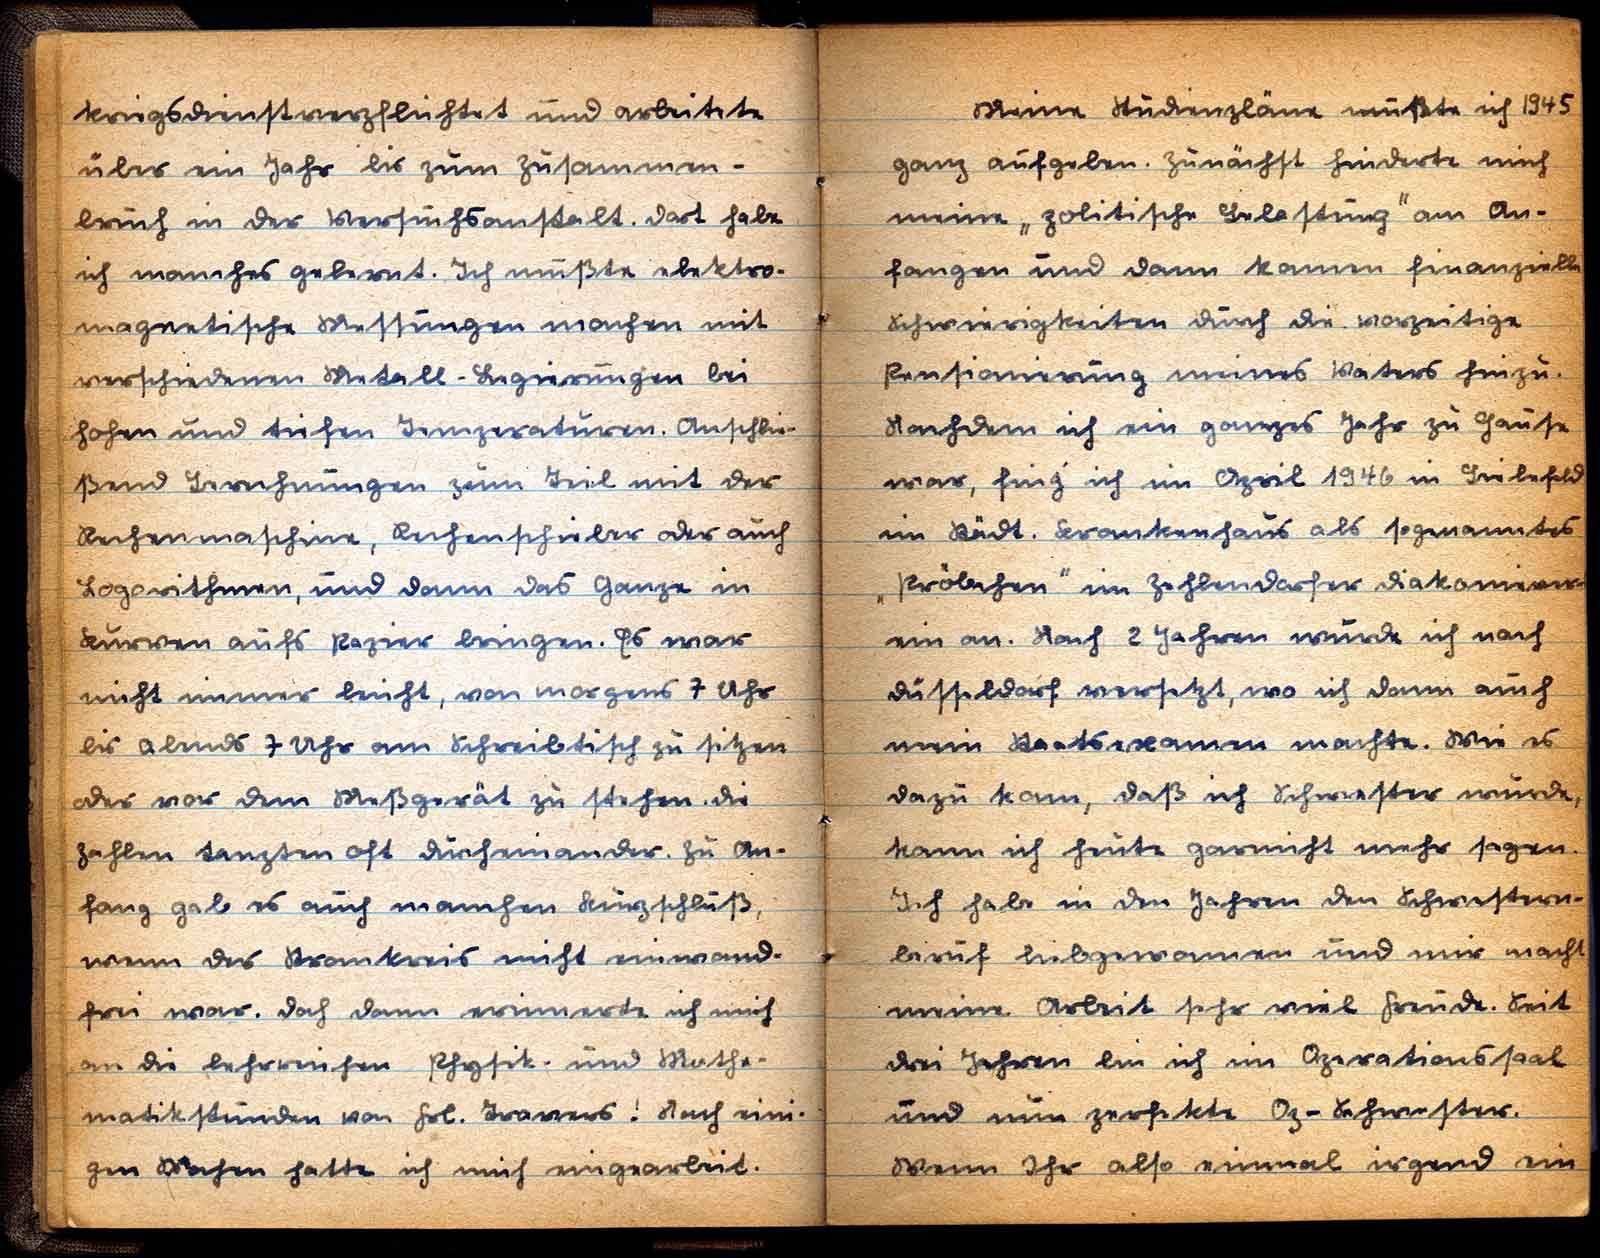 kriegsdienstverpflichtet und arbeitete
über ein Jahr bis zum Zusammen-
bruch in der Versuchsanstalt. Dort habe
ich manches gelernt. Ich mußte elektro-
magnetische Messungen machen mit
verschiedenen Metall-Legierungen bei
hohen und tiefen Temperaturen. Anschlie-
ßend Berechnungen zum Teil mit der
Rechenmaschine, Rechenschieber oder auch
Logorithmen, und dann das Ganze in
Kurven aufs Papier bringen. Es war
nicht immer leicht, von morgens 7 Uhr
bis Abends 7 Uhr am Schreibtisch zu sitzen
oder vor dem Meßgerät zu stehen. Die
Zahlen tanzten oft durcheinander. Zu An-
fang gab es auch manchen Kurzschluß,
wenn der Stromkreis nicht einwand-
frei war. Doch dann erinnerte ich mich
an die lehrreichen Physik- und Mathe-
matikstunden von Frl. Travers! Nach eini-
gen Wochen hatte ich mich eingearbeit.
Meine Studienpläne mußte ich 1945
ganz aufgeben. Zunächst hinderte mich
meine „politische Belastung" am An-
fangen und dann kamen finanzielle
Schwierigkeiten durch die vorzeitige
Pensionierung meines Vaters hinzu.
Nachdem ich ein ganzes Jahr zu Hause
war, fing ich im April 1946 in Bielefeld
im Städt. Krankenhaus als sogenanntes
„Pröbchen" im Zehlendorfer Diakoniever-
ein an. Nach 2 Jahren wurde ich nach
Düsseldorf versetzt, wo ich dann auch
mein Staatsexamen machte. Wie es
dazu kam, daß ich Schwester wurde,
kann ich heute garnicht mehr sagen.
Ich habe in den Jahren den Schwestern-
beruf liebgewonnen und mir macht
meine Arbeit sehr viel Freude. Seit
drei Jahren bin ich im Operationssaal
und nun perfekte Op-Schwester.
Wenn Ihr also einmal irgend ein